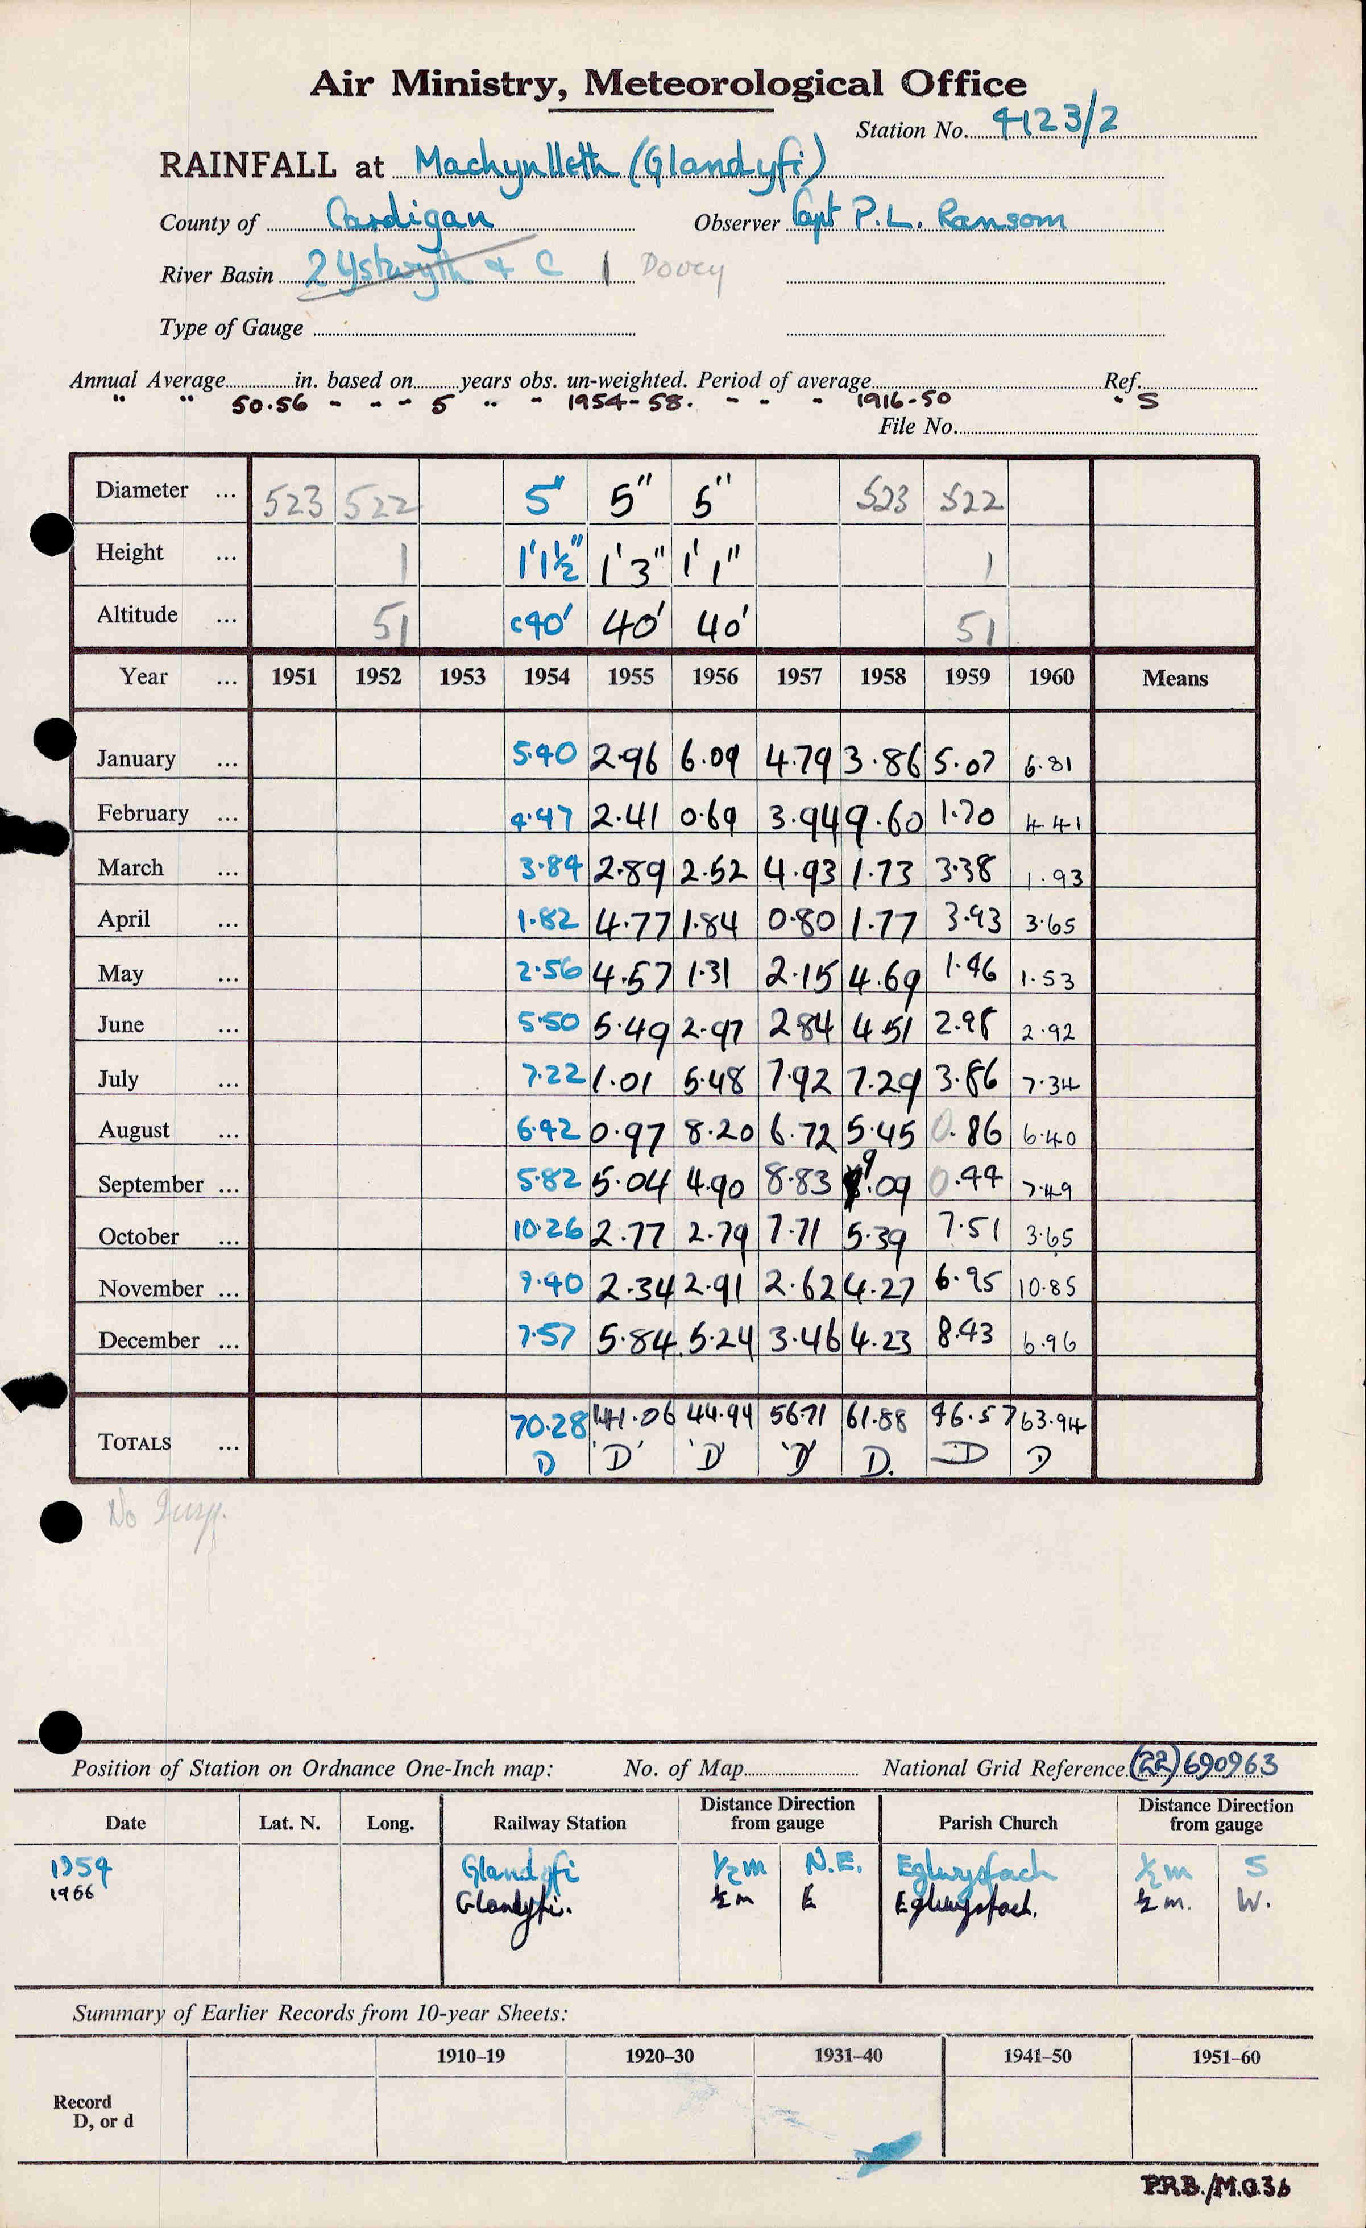 Air Ministry, Meteorological Office
Station No. 4123/2
RAINFALL at Machynlleth (Glandyfi)
County of Cardigan Observer Capt P.L. Ransom
River Basin 2 Ystwyth + C 1 Dovey
Type of Gauge
Annual Average in. based on years obs. un-weighted. Period of average Ref.
" " 50.56 - - - 5 " - 1954-58. - - - 1916-50 - S
File No.
Diameter ... 523 522 5" 5" 5" 523 522
Height ... 1 1'1½" 1'3" 1'1" 1
Altitude ... 51 c40' 40' 40' 51
Year ... 1951 1952 1953 1954 1955 1956 1957 1958 1959 1960 Means
January ... 5.40 2.96 6.09 4.79 3.86 5.07 6.81
February ... 4.47 2.41 0.69 3.94 9.60 1.70 4.41
March ... 3.84 2.89 2.52 4.93 1.73 3.38 1.93
April ... 1.82 4.77 1.84 0.80 1.77 3.93 3.65
May ... 2.56 4.57 1.31 2.15 4.69 1.46 1.53
June ... 5.50 5.49 2.97 2.84 4.51 2.98 2.92
July ... 7.22 1.01 5.48 7.92 7.29 3.86 7.34
August ... 6.42 0.97 8.20 6.72 5.45 0.86 6.40
September ... 5.82 5.04 4.90 8.83 9.09 0.44 7.49
October ... 10.26 2.77 2.79 7.71 5.39 7.51 3.65
November ... 9.40 2.34 2.91 2.62 4.27 6.95 10.85
December ... 7.57 5.84 5.24 3.46 4.23 8.43 6.96
TOTALS ... 70.28 41.06 44.94 56.71 61.88 46.57 63.94
D 'D' 'D' 'D' D. D D
No
Position of Station on Ordnance One-Inch map: No. of Map National Grid Reference (22)690963
Date Lat. N. Long. Railway Station Distance Direction from gauge Parish Church Distance Direction from gauge
1954 Glandyfi ½m N.E. Eglwysfach ½m S
1956 Glandyfi. ½m E Eglwysfach. ½m. W.
Summary of Earlier Records from 10-year Sheets:
1910–19 1920–30 1931–40 1941–50 1951–60
Record
D, or d
P.R.B./M.O.36